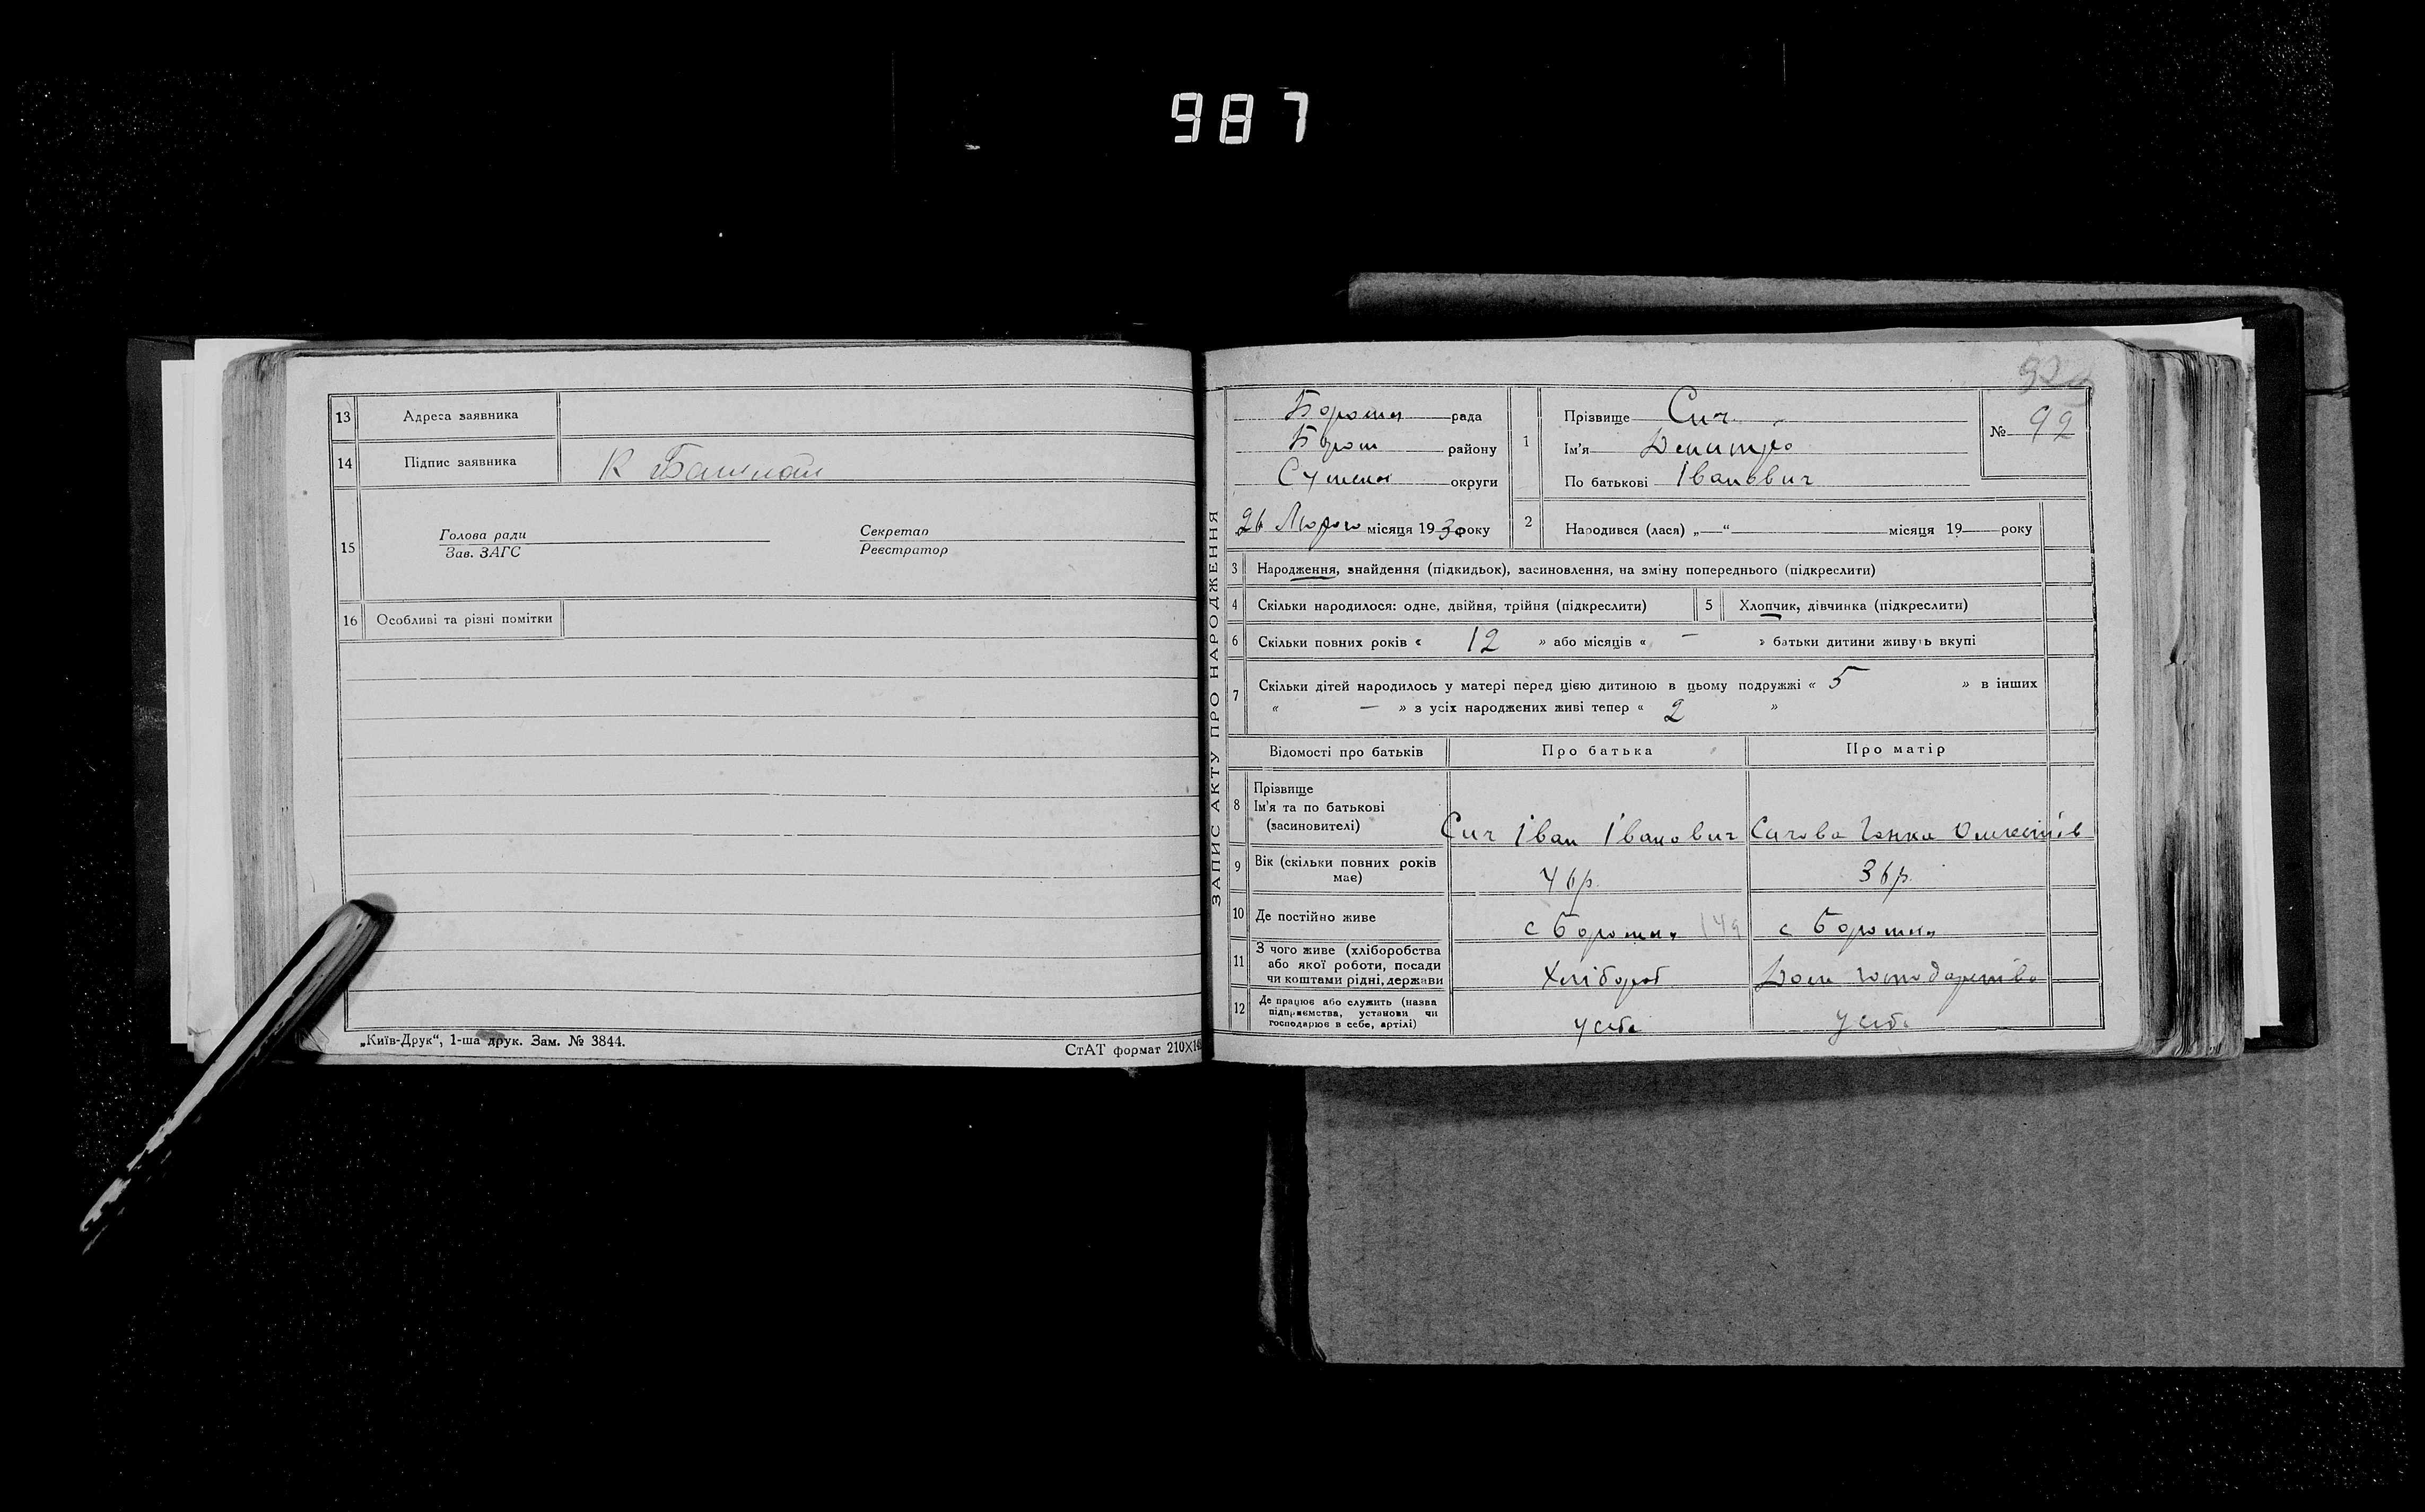 987
13 Адреса заявника
14 Підпис заявника К
15 Голова ради Секретар
Зав. ЗАГС Реєстратор
16 Особливі та різні помітки
„Київ-Друк“, 1-ша друк. Зам. № 3844.
СтАТ формат 210X14
ЗАПИС АКТУ ПРО НАРОДЖЕННЯ
рада
району
округи
26 Лютого місяця 1930 року
1 Прізвище Сич
Ім'я Дмитро
По батькові Іванович
№ 92
2 Народився (лася) „—“ місяця 19 — року
3 Народження, знайдення (підкидьок), засиновлення, на зміну попереднього (підкреслити)
4 Скільки народилося: одне, двійня, трійня (підкреслити)
5 Хлопчик, дівчинка (підкреслити)
6 Скільки повних років « 12 » або місяців « — » батьки дитини живуть вкупі
7 Скільки дітей народилось у матері перед цією дитиною в цьому подружжі « 5 » в інших
« — » з усіх народжених живі тепер « 2 »
Відомості про батьків Про батька Про матір
8 Прізвище
Ім'я та по батькові
(засиновителі)
Сич Іван Іванович Сичова Ганка
9 Вік (скільки повних років
має)
46р. 36р.
10 Де постійно живе с Боромля 149 с Боромля
11 З чого живе (хліборобства
або якої роботи, посади
чи коштами рідні, держави
Хлібороб Дом господарство
12 Де працює або служить (назва
підприємства, установи чи
господарює в себе, артілі)
у себе у себе